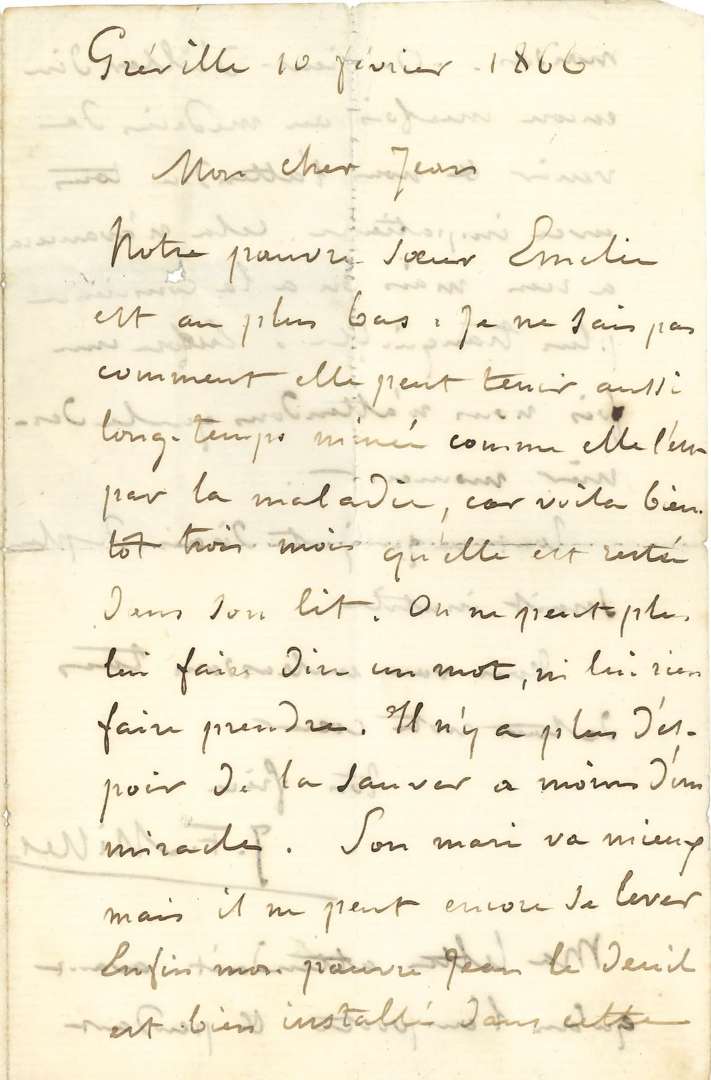 Gréville 10 février 1866
Mon cher Jean
Notre pauvre sœur Emelie
est au plus bas. Je ne sais pas
comment elle peut tenir aussi
long-temps minée comme elle l'est
par la maladie, car voila bien-
tot trois mois qu'elle est restée
dans son lit. On ne peut plus
lui faire dire un mot, ni lui rien
faire prendre. Il n'y a plus d'es-
poir de la sauver a moins d'un
miracle. Son mari va mieux
mais il ne peut encore se lever
Enfin mon pauvre Jean le deuil
est bien installé dans cette